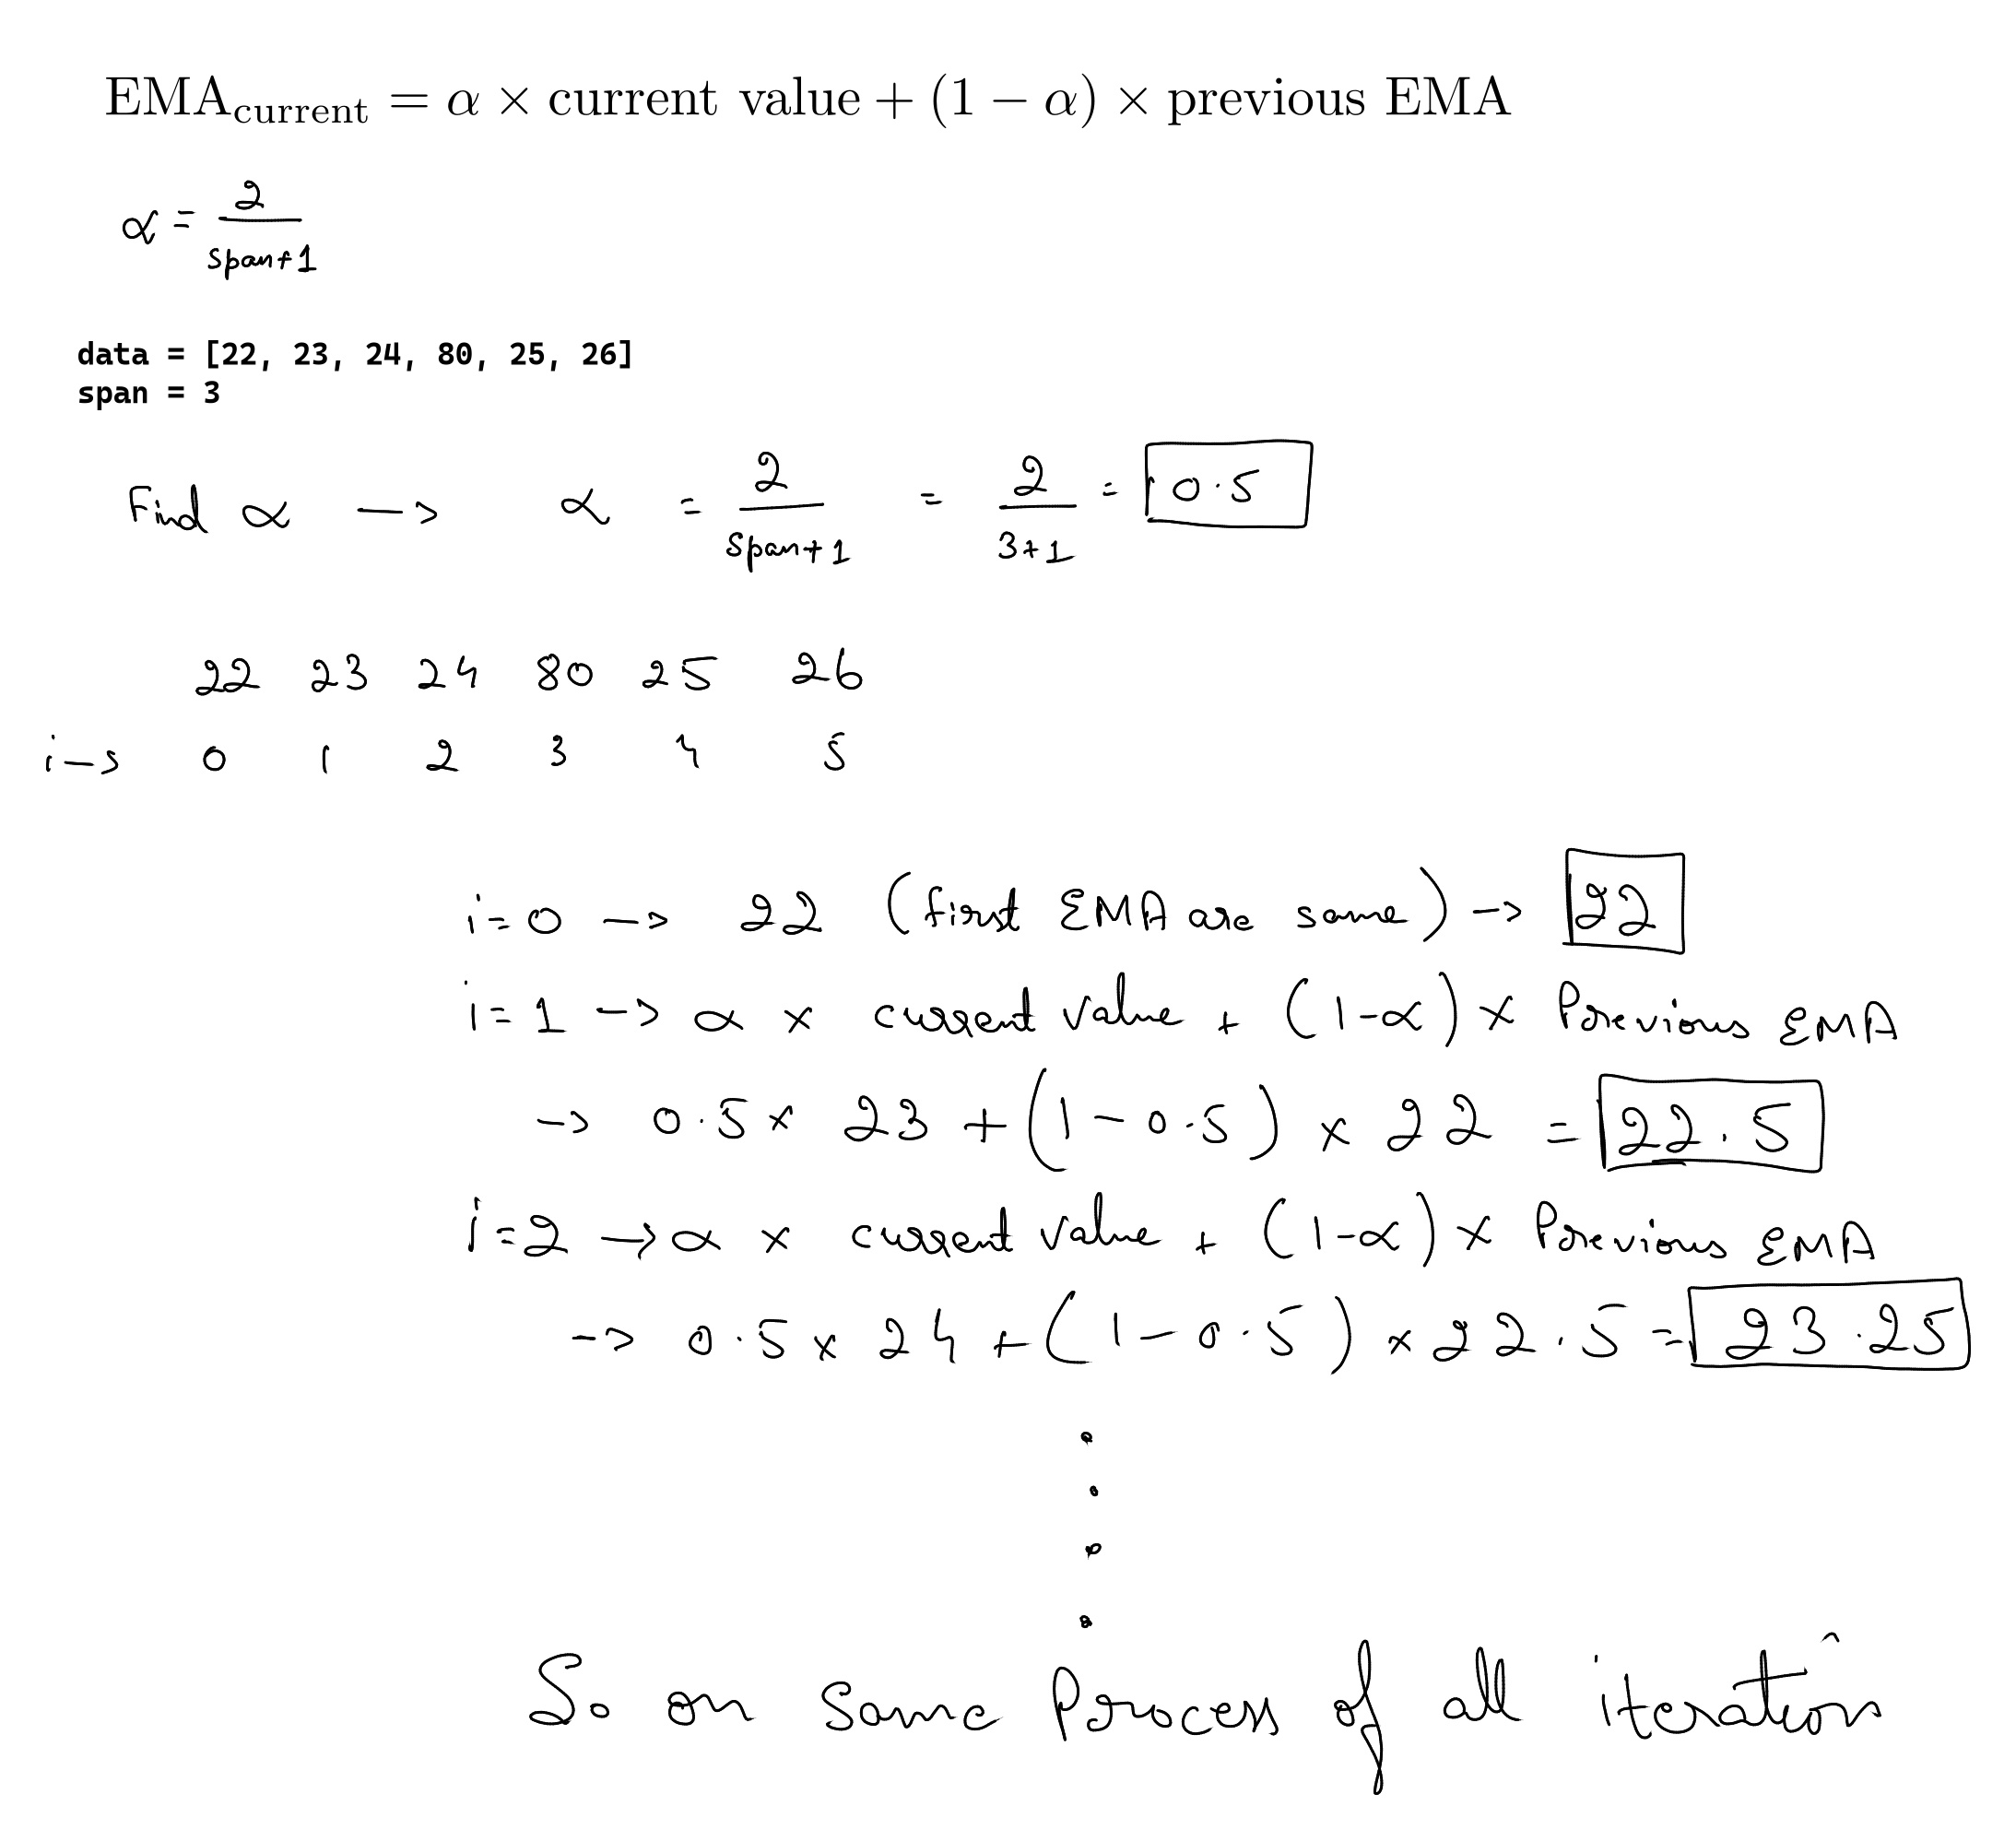 EMA_current = α × current value + (1 − α) × previous EMA
α = 2/(span+1)
data = [22, 23, 24, 80, 25, 26]
span = 3
Find α → α = 2/(span+1) = 2/(3+1) = 0.5
22 23 24 80 25 26
i→ 0 1 2 3 4 5
i=0 → 22 (first EMA are same) → 22
i=1 → α × current value + (1-α) × Previous EMA
→ 0.5 × 23 + (1-0.5) × 22 = 22.5
i=2 → α × current value + (1-α) × Previous EMA
→ 0.5 × 24 + (1-0.5) × 22.5 = 23.25
So on same Process of all iteration